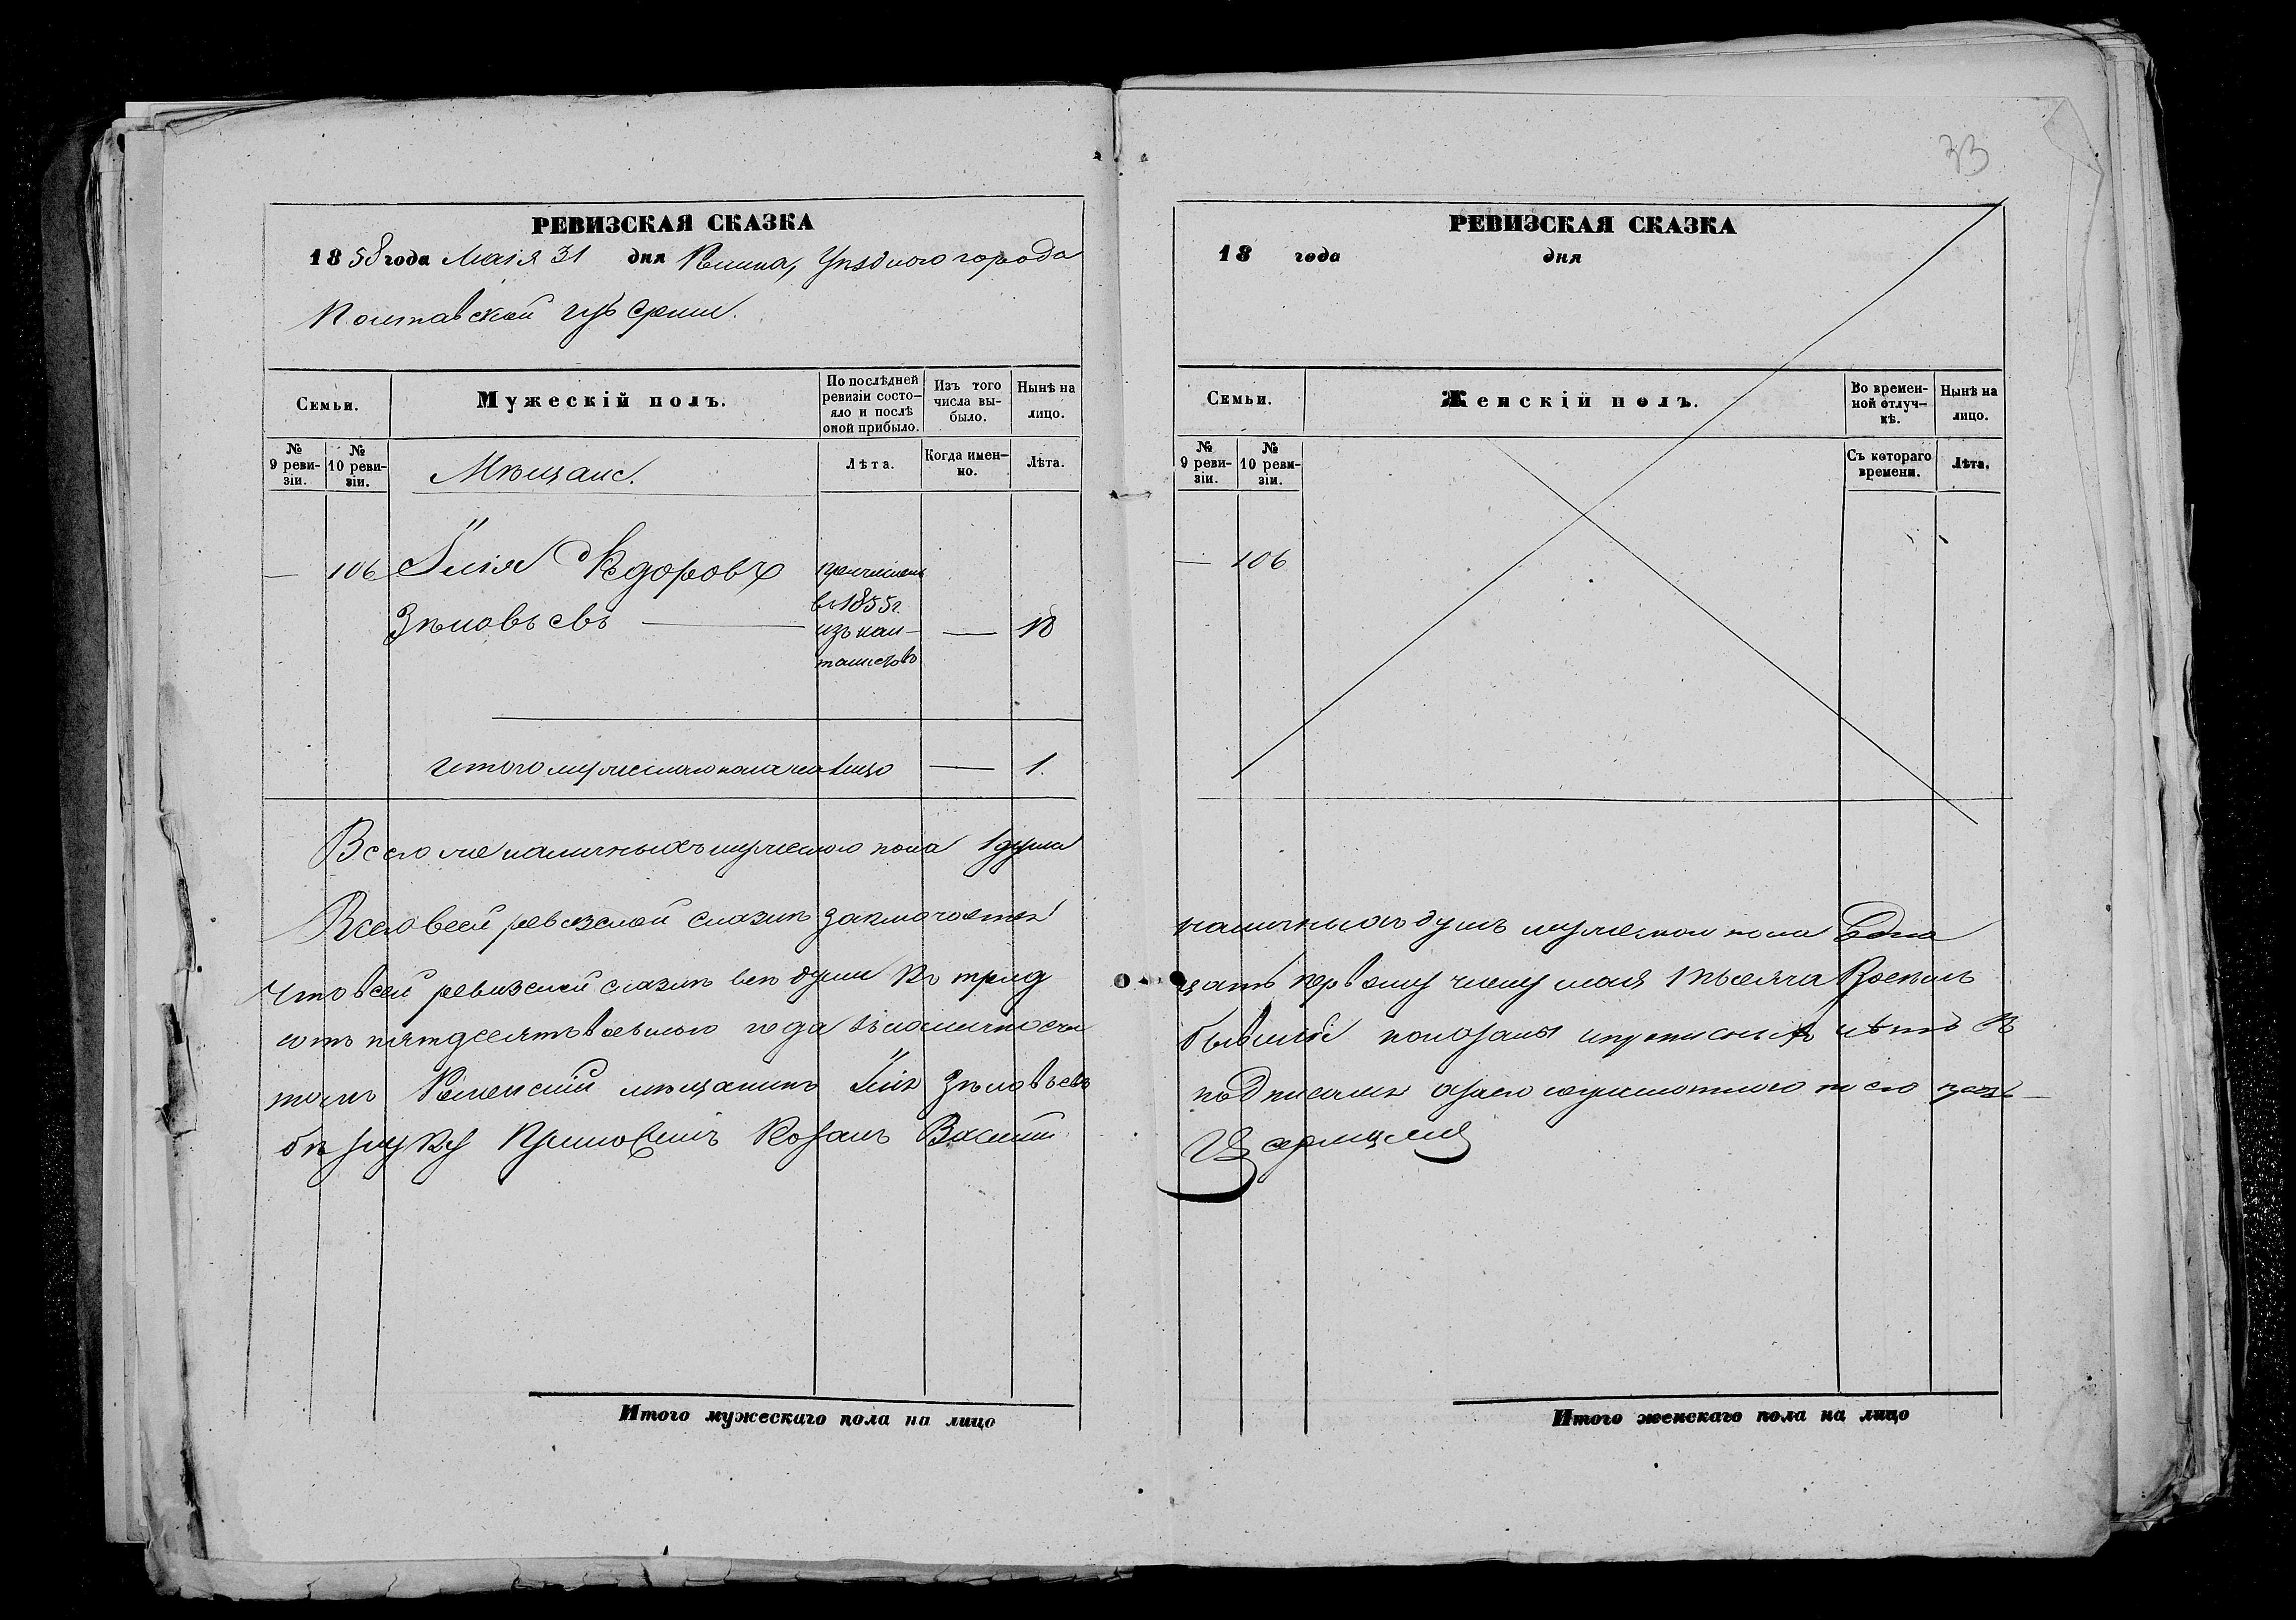 РЕВИЗСКАЯ СКАЗКА
1858 года Маія 31 дня Ромна, Уѣзднаго города
Полтавской губерніи.
Семьи.
Мужескій полъ.
По послѣдней ревизіи состо-
яло и послѣ
оной прибыло.
Изъ того
числа вы-
было.
Нынѣ на
лицо.
№
9 реви-
зіи.
№
10 реви-
зіи.
Мѣщане.
Лѣта.
Когда имен-
но.
Лѣта.
— 106 Илія Ѳедоровъ
Зѣновьевъ — — 18
причисленъ
въ 1855 г.
изъ кан-
тонистовъ
итого мужескаго пола на лицо — 1.
Всего же наличныхъ мужескаго пола 1 душа
Всего въ сей ревизской сказкѣ заключается
Что въ сей ревизской сказкѣ всѣ души къ трид
сотъ пятдесятъ восьмаго года въ наличности
томъ Роменскій мѣщанинъ Илія Зѣновьевъ
бѣ руку приложилъ Козакъ Василій
Итого мужескаго пола на лицо
33
РЕВИЗСКАЯ СКАЗКА
18 года дня
Семьи.
Женскій полъ.
Во времен-
ной отлуч-
кѣ.
Нынѣ на
лицо.
№
9 реви-
зіи.
№
10 реви-
зіи.
Съ котораго
времени.
Лѣта.
— 106
наличныхъ душъ мужескаго пола Одна
цать первому числу мая тысяча Восемь
бывшіе показаны и пропускныхъ нѣтъ въ
подписался а за него неграмотнаго по его прозь—
Итого женскаго пола на лицо